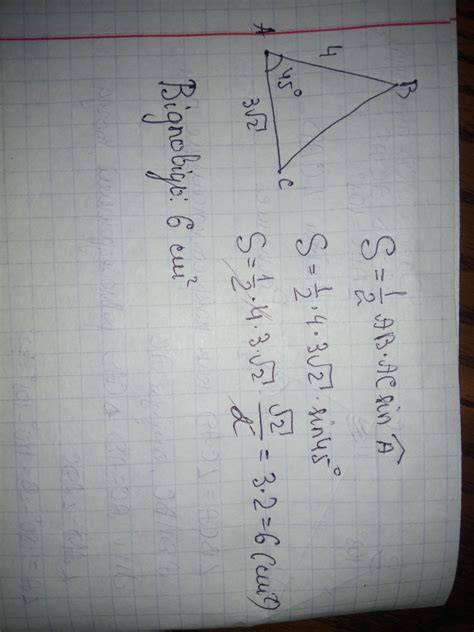 A
4
B
45°
3√2
C
S=1/2 AB·AC sin A^
S=1/2·4·3√2·sin45°
S=1/2·4·3·√2·√2/2=3·2=6(см²)
Відповідь: 6 см²